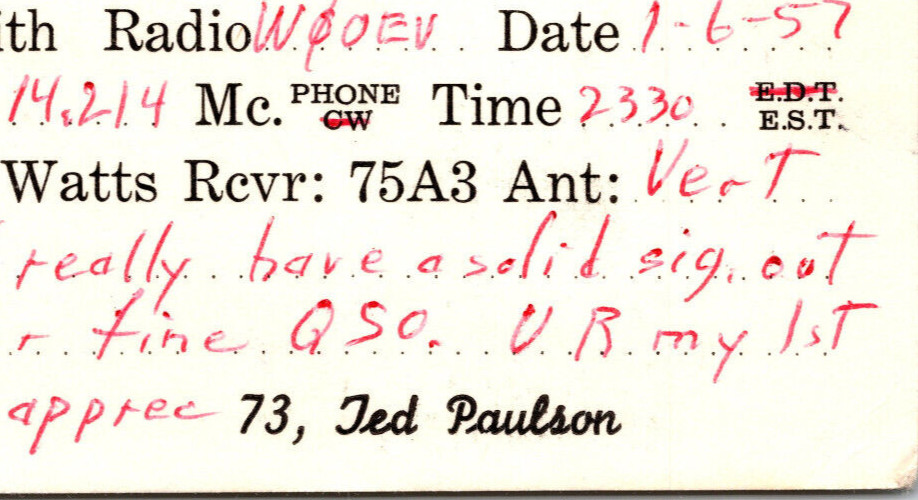 ith Radio WØOEV Date 1-6-57
14.214 Mc. PHONE CW Time 2330 E.D.T. E.S.T.
Watts Rcvr: 75A3 Ant: VerT
really have a solid sig. out
r fine QSO. U R my 1st
apprec 73, Ted Paulson